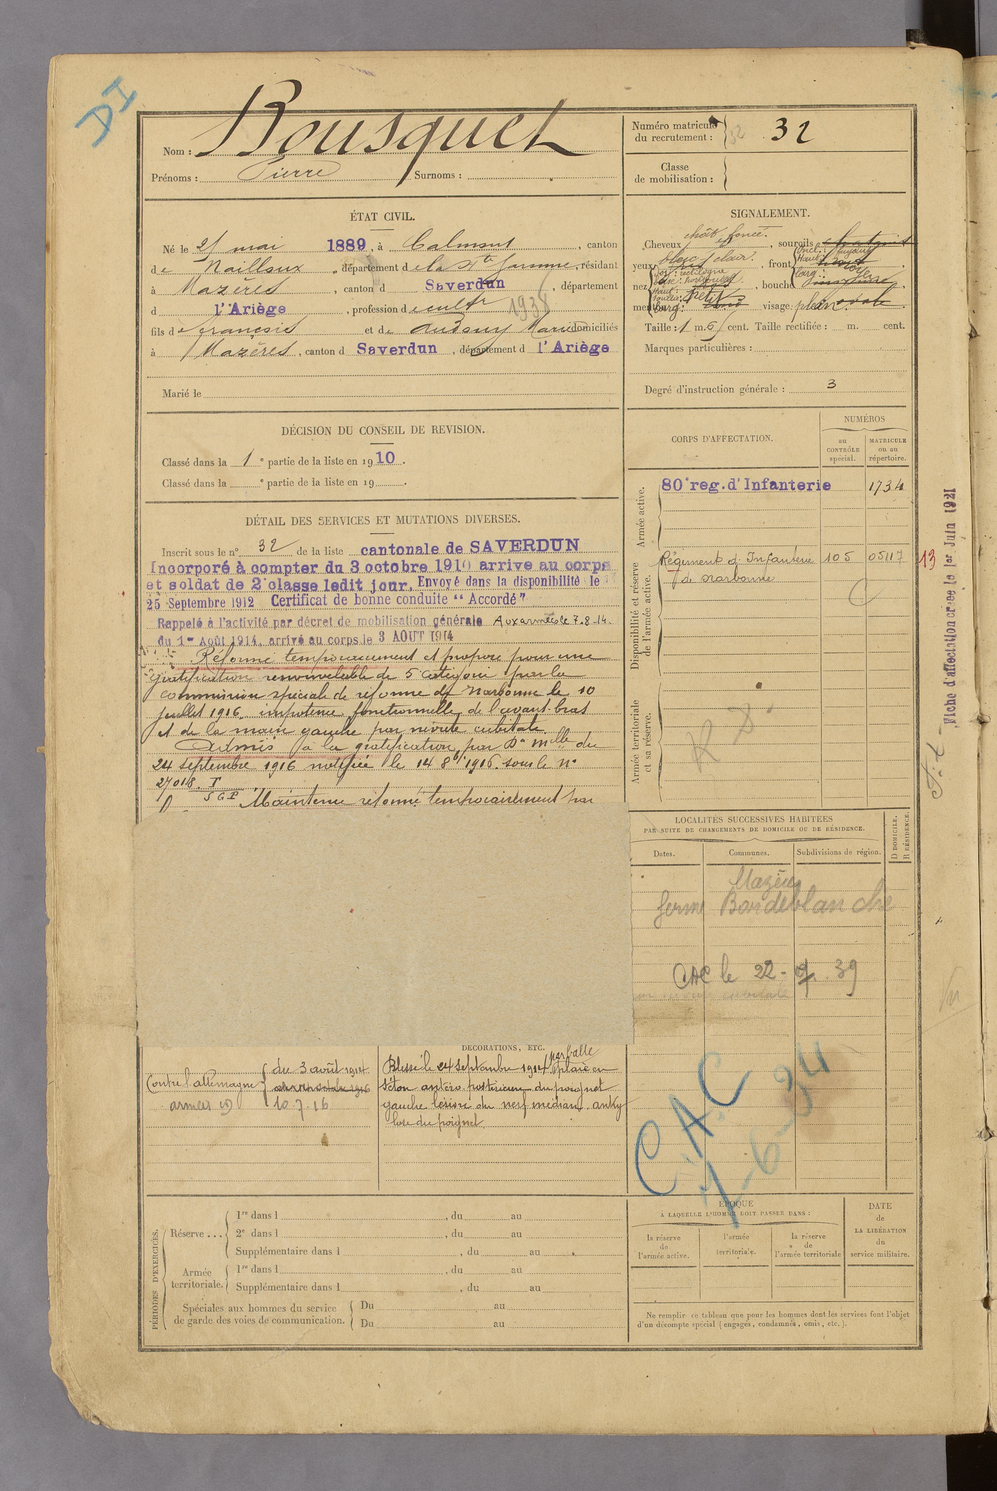 DI
Nom : Bousquet
Prénoms : Pierre Surnoms :
Numéro matricule du recrutement : 32
Classe de mobilisation :
ÉTAT CIVIL.
Né le 21 mai 1889, à Calmont, canton
de Nailloux, département de la Hte Garonne, résidant
à Mazères, canton d Saverdun, département
d l'Ariège, profession de cultr 1938
fils de françois et de Marie domiciliés
à Mazères, canton d Saverdun, département d l'Ariège
Marié le
SIGNALEMENT.
Cheveux chât. foncé, sourcils châtains
yeux, front
nez, bouche
visage plein ovale
Taille : 1 m. 67 cent. Taille rectifiée : m. cent.
Marques particulières :
Degré d'instruction générale : 3
DÉCISION DU CONSEIL DE REVISION.
Classé dans la 1e partie de la liste en 1910.
Classé dans la e partie de la liste en 19
CORPS D'AFFECTATION.
NUMÉROS
au CONTRÔLE spécial.
MATRICULE ou au répertoire.
Armée active.
80e reg. d'Infanterie 1734
Disponibilité et réserve de l'armée active.
Régiment d'Infanterie 105 05117 13
de Narbonne
Armée territoriale et sa réserve.
DÉTAIL DES SERVICES ET MUTATIONS DIVERSES.
Inscrit sous le n° 32 de la liste cantonale de SAVERDUN
Incorporé à compter du 3 octobre 1910 arrive au corps
et soldat de 2e classe ledit jour. Envoyé dans la disponibilité le
25 Septembre 1912 Certificat de bonne conduite "Accordé"
Rappelé à l'activité par décret de mobilisation générale Aux armées le 7-8-14.
du 1er Août 1914, arrivé au corps le 3 AOUT 1914
Réformé temporairement et proposé pour une
gratification renouvelable de 5e catégorie par la
commission spéciale de réforme de Narbonne le 10
juillet 1916. impotence fonctionnelle de l'avant-bras
et de la main gauche par névrite cubitale
Admis à la gratification par Dn Mlle du
24 septembre 1916 notifiée le 14 8bre 1916. sous le N°
27018.
Maintenu réformé temporairement par
Fiche d'affectation créée le 1er Juin 1921
LOCALITÉS SUCCESSIVES HABITÉES
PAR SUITE DE CHANGEMENTS DE DOMICILE OU DE RÉSIDENCE.
Dates. Communes. Subdivisions de région.
D DOMICILE. R RÉSIDENCE.
Mazères
ferme Bordeblanche
CAC le 22-9-39
CAC
7-6-34
DÉCORATIONS, ETC.
Contre l'allemagne du 3 août 1914
armées 10-7-16
Blessé le 24 septembre 1914 par balle plaie en
séton antéro postérieur du poignet
gauche lésion du nerf médian anky
lose du poignet
PÉRIODES D'EXERCICES.
Réserve....
1re dans l, du au
2e dans l, du au
Supplémentaire dans l, du au
Armée territoriale.
1re dans l, du au
Supplémentaire dans l, du au
Spéciales aux hommes du service de garde des voies de communication.
Du au
Du au
ÉPOQUE
À LAQUELLE L'HOMME DOIT PASSER DANS :
la réserve de l'armée active.
l'armée territoriale.
la réserve de l'armée territoriale
DATE de LA LIBÉRATION du service militaire.
Ne remplir ce tableau que pour les hommes dont les services font l'objet
d'un décompte spécial (engagés, condamnés, omis, etc.).